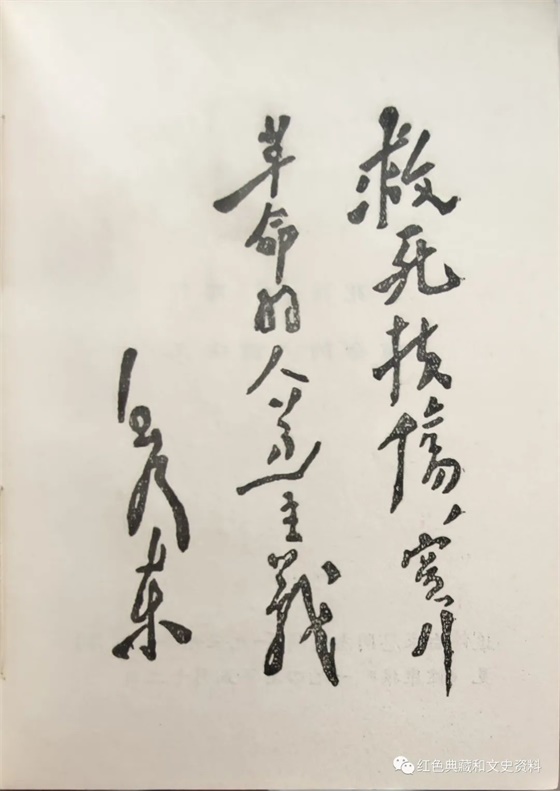 救死扶傷、實行
革命的人道主義
毛澤東
红色典藏和文史资料